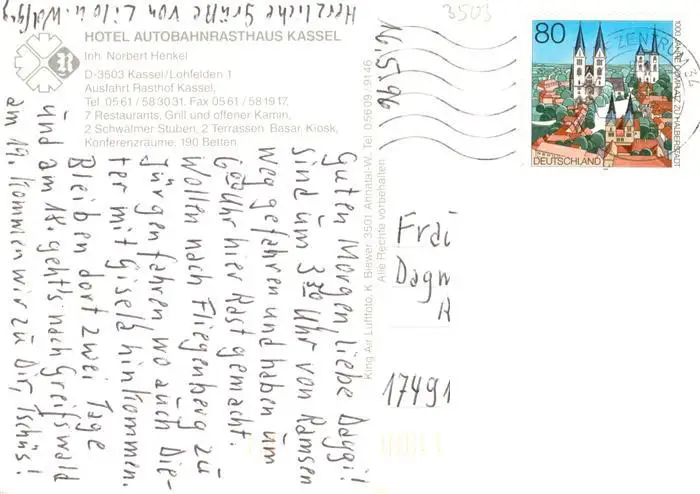 HOTEL AUTOBAHNRASTHAUS KASSEL
Inh. Norbert Henkel
D-3503 Kassel/Lohfelden 1
Ausfahrt Rasthof Kassel,
Tel. 05 61 / 58 30 31. Fax 05 61 / 5819 17,
7 Restaurants, Grill und offener Kamin,
2 Schwälmer Stuben, 2 Terrassen. Basar. Kiosk,
Konferenzräume, 190 Betten
R
3503
16.5.96
80
DEUTSCHLAND
1000 JAHRE DOMPLATZ ZU HALBERSTADT
ZENTRUM
34
King Air Luftfoto, K. Biewer, 3501 Ahnatal-W. Tel. 0 56 09 / 91 46
Alle Rechte vorbehalten
Guten Morgen liebe Daggi!
Sind um 3 30 Uhr von Ramsen
weggefahren und haben um
6 20 Uhr hier Rast gemacht.
Wollen nach Fliegenberg zu
Jürgen fahren wo auch Die-
ter mit Gisela hinkommen.
Bleiben dort zwei Tage
und am 18. geht's nach Greifswald
am 19. kommen wir zu Dir, Tschüs!
Herzliche Grüße von Lilo u. Wolfg
Frau
Dagm
17491